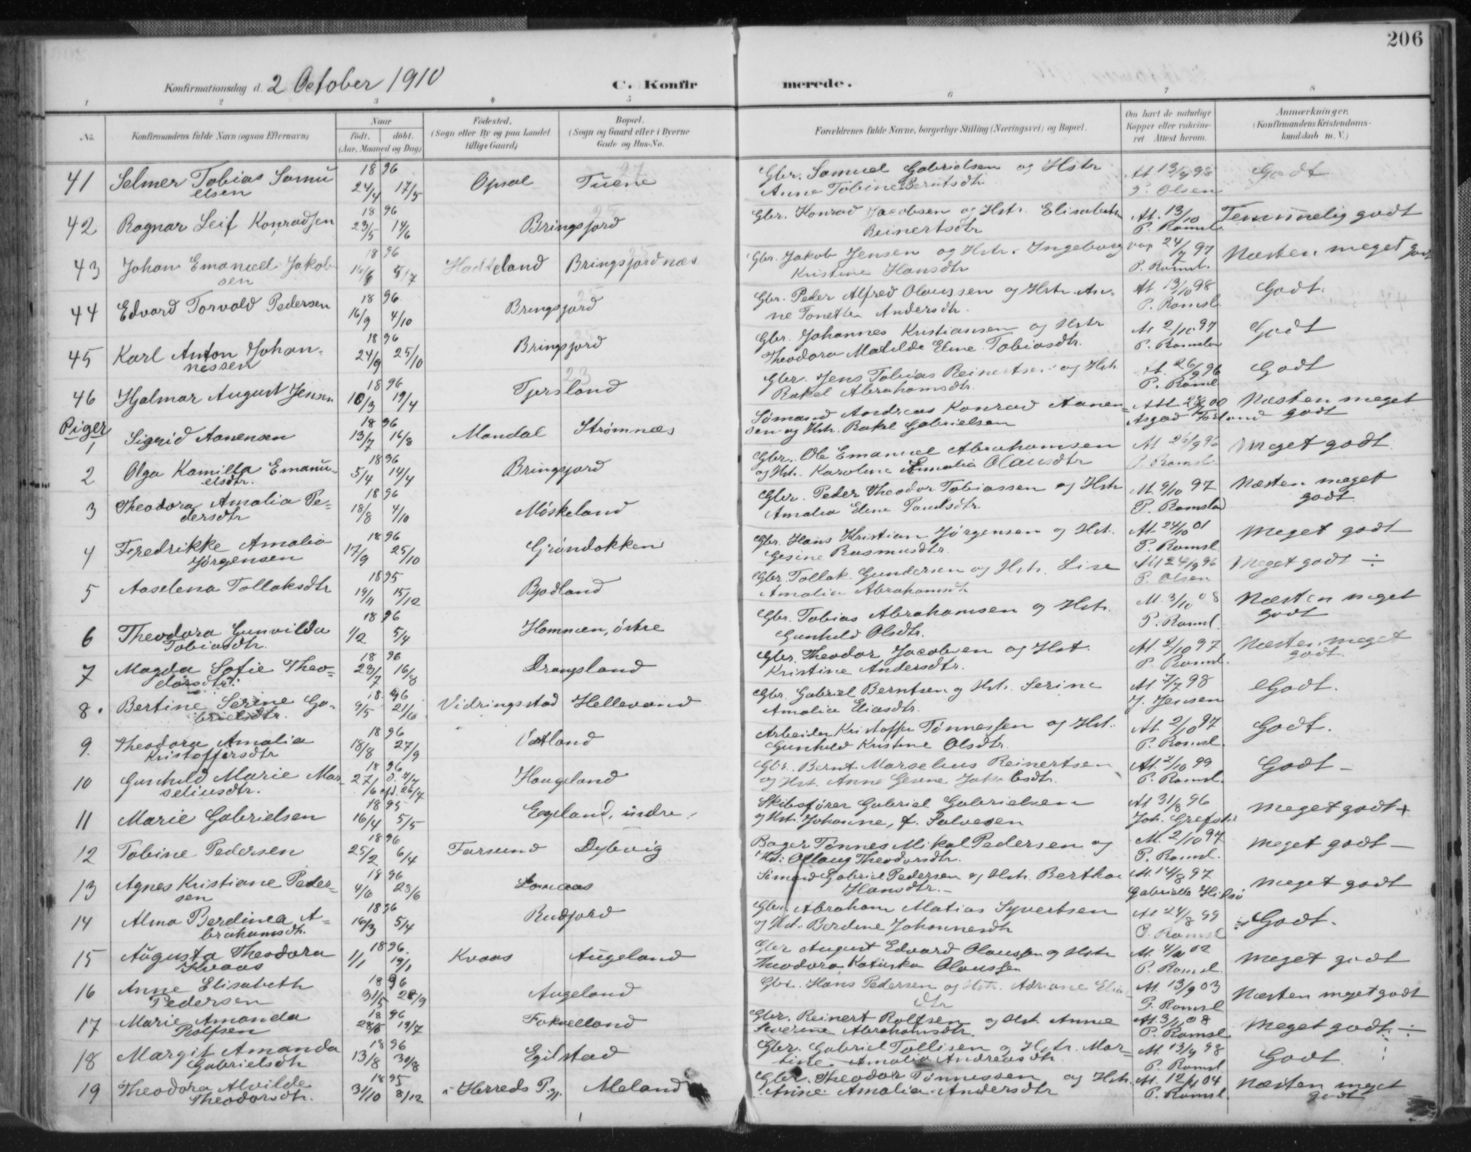 206
Konfirmationsdag d. 2 October 1910 C. Konfirmerede.
1 2 3 4 5 6 7 8
No. Konfirmandens fulde Navn (ogsaa Efternavn) Naar født. døbt. (Aar, Maaned og Dag) Fødested. (Sogn eller By og paa Landet tillige Gaard) Bopæl. (Sogn og Gaard eller i Byerne Gade og Hus-No. Forældrenes fulde Navne, borgerlige Stilling (Næringsvei) og Bopæl. Om havt de naturlige Kopper eller vaccineret Attest herom. Anmærkninger. (Konfirmandens Kristendomskundskab m. V.)
41 Selmer Tobias Samuelsen 1896 24/4 17/5 Opsal Tuene 27 Gbr. Samuel Gabrielsen og Hstr Anne Tobine Berntsdtr At 13/9 98 P. Olsen Godt
42 Ragnar Leif Konradsen 1896 23/5 14/6 Bringsjord 25 Gbr. Konrad Jacobsen og Hstr. Elisabeth Reinertsdtr At. 13/10 P. Romsl. Temmelig godt
43 Johan Emanuel Jakobsen 1896 5/7 Bringsjordnæs Gbr. Jakob Jensen og Hstr. Ingeborg Kristine Hansdtr 24/7 97 P. Romsl. Næsten meget godt
44 Edvard Torvald Pedersen 1896 16/9 4/10 Bringsjord Gbr. Peder Alfred Olaussen og Hstr. Anne Tonette Andersdtr. At 13/10 98 P. Romsl Godt.
45 Karl Anton Johannessen 1896 24/9 25/10 Bringsjord Gbr. Johannes Kristiansen og Hstr Theodora Matilde Eline Tobiasdtr. At 2/10 97 P. Romsl Godt
46 Hjalmar August Jensen 1896 10/3 19/4 Tjersland 23 Gbr. Jens Tobias Reinertsen og Hstr Rakel Abrahamsdtr At 26/9 96 P. Romsl Godt
Piger
1 Sigrid Aanensen 1896 13/7 16/8 Mandal Strømnæs Sømand Andreas Konrad Aanensen og Hstr. Rakel Gabrielsen Næsten meget godt
2 Olga Kamilla Emanuelsdtr. 1896 5/4 14/4 Bringsjord Gbr. Ole Emanuel Abrahamsen og Hst. Karoline Amalia Olausdtr At 26/9 96 P. Romsl. Meget godt
3 Theodora Amalia Pedersdtr 1896 18/8 4/10 Møskeland Gbr. Peder Theodor Tobiassen og Hstr Amalia Eline M. 9/10 97 P. Romslo Næsten meget godt
4 Fredrikke Amalia Jørgensen 1896 17/9 25/10 Grøndokken Gbr. Hans Kristian Jørgensen og Hst. Gesine Rasmusdtr. At 24/10 01 P. Romsl Meget godt
5 Aaselena Tollaksdtr 1895 19/11 15/12 Bjodland Gbr. Tollak Gundersen og Hstr. Lise Amalia Abrahamsdtr At 24/9 96 P. Olsen Meget godt ÷
6 Theodora Gunvilda Tobiasdtr. 1896 1/2 5/4 Hommen, østre Gbr. Tobias Abrahamsen og Hstr. Gunhild Olsdtr. M. 3/10 08 P. Romsl. Næsten meget godt
7 Magda Sofie Theodorsdtr. 1896 23/7 16/8 Drangsland Gbr. Theodor Jacobsen og Hst. Kristine Andersdtr. At 9/10 97 P. Romsl. Næsten meget godt
8. Bertine Serine Gabrielsdtr. 1896 9/5 21/6 Vidringstad Hellevand Gbr. Gabriel Berntsen og Hst. Serine Amalia Eliasdtr. At 7/7 98 J. Jensen Godt.
9. Theodora Amalia Kristoffersdtr 1896 18/8 27/9 Vatland Arbeider Kristoffer Tønnessen og Hst. Gunhild Kristine Olsdtr. At 2/10 97 P. Romsl. Godt.
10 Gunhild Marie Marseliusdtr. 1896 Haugeland Gbr. Bernt Marselius Reinertsen og Hst. Anne Gesine Jakobsdtr. At 2/10 99 P. Romsl. Godt -
11 Marie Gabrielsen 1895 16/4 5/5 Egeland, indre. Skibsfører Gabriel Gabrielsen og Hst. Johanne, f. Salvesen At 31/8 96 Joh. Grefst Meget godt +
12 Tobine Pedersen 1896 25/2 6/4 Farsund Dybvig Bager Tønnes Mikal Pedersen og Hst: Ollaug Theodorsdtr. M. 2/10 97 P. Romsl. Meget godt -
13 Agnes Kristiane Pedersen 1896 4/6 23/6 Sømand Gabriel Pedersen og Hstr. Berthe Hansdtr. - At 14/8 97 Gabrielle Meget godt
14 Alma Berdinea Abrahamsdtr. 1896 16/3 5/4 Rudjord Gbr. Abraham Matias Syvertsen og Hst. Berdine Johannesdtr At 24/8 99 P. Romsl Godt.
15 Augusta Theodora Kvaas 1896. 1/1 19/1 Kvaas Augeland Gbr August Edvard Olaussen og Hstr Theodora Katinka Olaussen M. 4/10 02 P. Romsl. Meget godt
16 Anne Elisabeth Pedersen 1896 31/5 Augeland Gbr. Hans Pedersen og Hst. Adriane Eliasdtr At. 13/9 03 P. Romsl Næsten meget godt
17 Marie Amanda Rolfsen 1896 19/7 Fokselland Gbr. Reinert Rolfsen og Hst. Anne Severine Abrahamsdtr At 3/10 08 P. Romsl Meget godt ÷
18 Margit Amanda Gabrielsdtr 1896 13/8 30/8 Egilstad Gbr. Gabriel Tollisen og Hstr. Martine Amalia Andreasdtr M. 13/9 98 P. Romsl Godt
19 Theodora Alvilde Theodorsdtr. 1895 31/10 8/12 i Herreds Pg. Meland Gbr. Theodor Tønnessen og Hstr. Anne Amalia Andersdtr M. 12/9 04 P. Romsl. Næsten meget godt